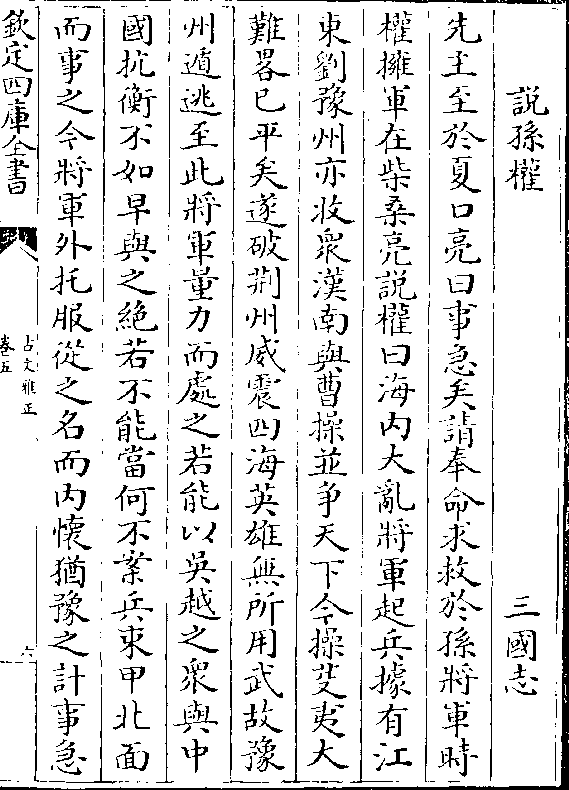 說孫權 三國志
先主至於夏口亮曰事急矣請奉命求救於孫將軍時
權擁軍在柴桑亮說權曰海内大亂將軍起兵據有江
東劉豫州亦收衆漢南與曹操並爭天下今操芟夷大
難畧已平矣遂破荆州威震四海英雄無所用武故豫
州遁逃至此將軍量力而處之若能以吳越之衆與中
國抗衡不如早與之絶若不能當何不案兵束甲北面
而事之今將軍外托服從之名而内懷猶豫之計事急
欽定四庫全書
古文雅正
卷五
六